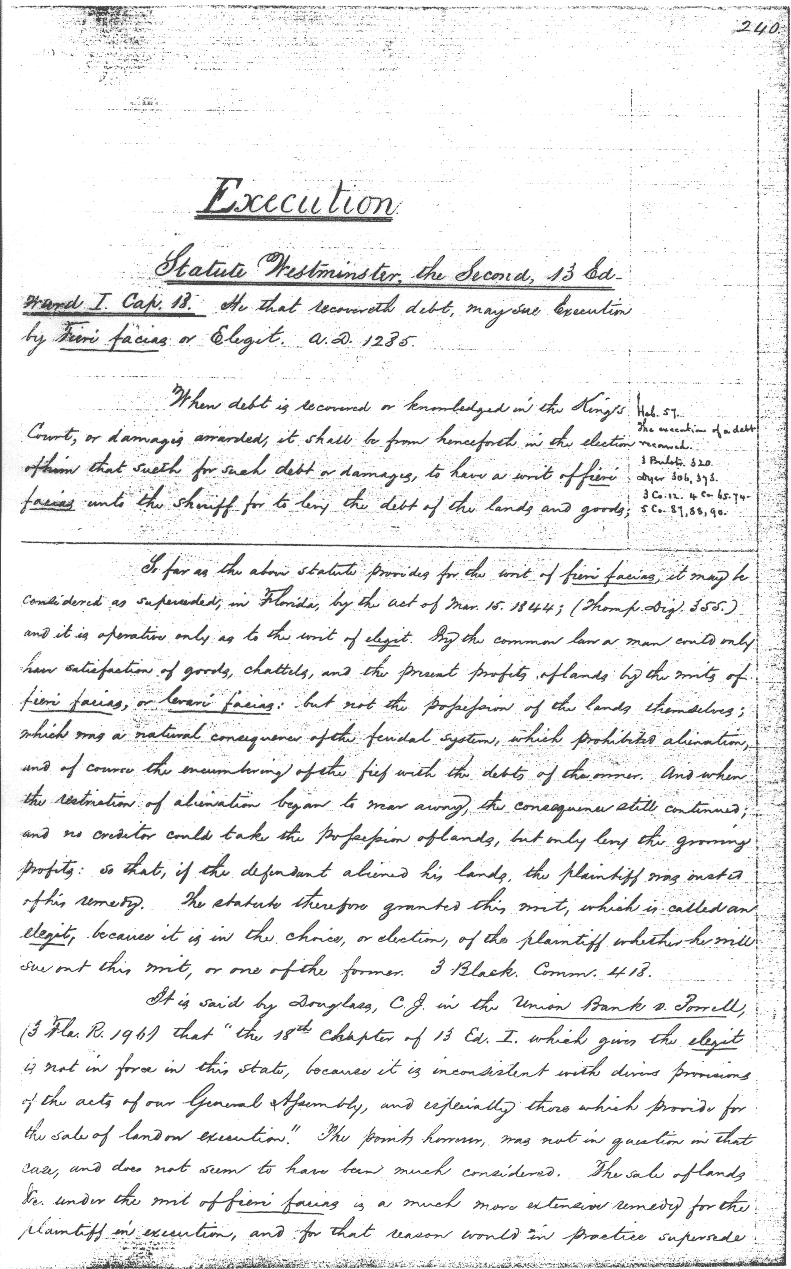 240
Execution
Statute Westminster, the Second, 13 Ed-
ward I. Cap. 18. He that recovereth debt, may sue Execution
by Fieri facias or Elegit. A.D. 1285.
When debt is recovered or knowledged in the King's
Court, or damages awarded, it shall be from henceforth in the election
of him that sueth for such debt or damages, to have a writ of fieri
facias unto the sheriff for to levy the debt of the lands and goods;
Hob. 57.
The execution of a debt
recovered.
3 Bulstr. 320.
Dyer 306, 373.
3 Co. 12. 4 Co. 65. 74.
5 Co. 87, 88, 90.
So far as the above statute provides for the writ of fieri facias, it may be
considered as superseded, in Florida, by the act of Mar. 15. 1844; (Thomp. Dig. 355.)
and it is operative only as to the writ of elegit. By the common law a man could only
have satisfaction of goods, chattels, and the present profits of lands by the writs of
fieri facias, or levari facias: but not the possession of the lands themselves;
which was a natural consequence of the feudal system, which prohibited alienation,
and of course the encumbering of the fief with the debts of the owner. And when
the restriction of alienation began to wear away, the consequence still continued;
and no creditor could take the possession of lands, but only levy the growing
profits: so that, if the defendant aliened his lands, the plaintiff was ousted
of his remedy. The statute therefore granted this writ, which is called an
elegit, because it is in the choice, or election, of the plaintiff whether he will
sue out this writ, or one of the former. 3 Black. Comm. 418.
It is said by Douglass, C.J. in the Union Bank v. Powell,
(3 Fla. R. 196) that "the 18th Chapter of 13 Ed. I. which gives the elegit
is not in force in this state, because it is inconsistent with divers provisions
of the acts of our General Assembly, and especially those which provide for
the sale of land on execution." The point, however, was not in question in that
case, and does not seem to have been much considered. The sale of lands
&c. under the writ of fieri facias is a much more extensive remedy for the
plaintiff in execution, and for that reason would in practice supersede